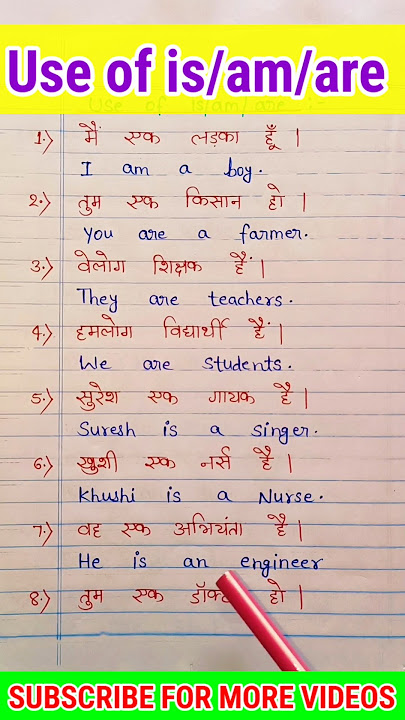 Use of is/am/are
Use of is/am/are :-
1.) मैं एक लड़का हूँ |
I am a boy.
2.) तुम एक किसान हो |
You are a farmer.
3.) वेलोग शिक्षक हैं |
They are teachers.
4.) हमलोग विद्यार्थी हैं |
We are students.
5.) सुरेश एक गायक है |
Suresh is a singer.
6.) खुशी एक नर्स है |
Khushi is a Nurse.
7.) वह एक अभियंता है |
He is an engineer
8.) तुम एक हो |
SUBSCRIBE FOR MORE VIDEOS